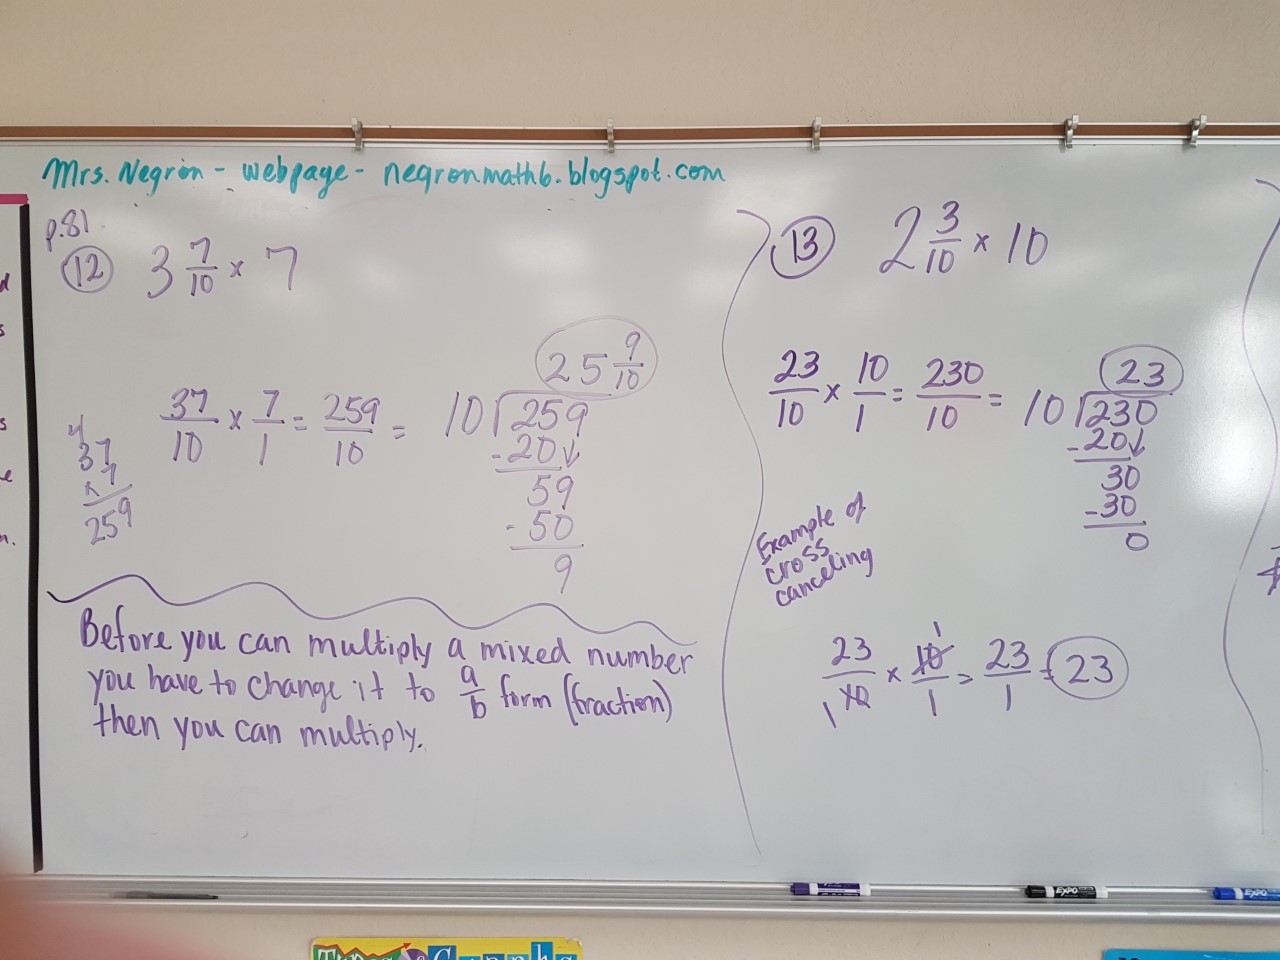 Mrs. Negrón - webpage - negronmath6.blogspot.com
p.81
12 3 7/10 × 7
25 9/10
37/10 × 7/1 = 259/10 = 10)259
-20↓
59
-50
9
4
37
×7
259
Before you can multiply a mixed number
you have to change it to a/b form (fraction)
then you can multiply.
13 2 3/10 × 10
23
23/10 × 10/1 = 230/10 = 10)230
-20↓
30
-30
0
Example of
cross
canceling
1
23/10 × 10/1 = 23/1 = 23
1
EXPO
EXPO
Graphs